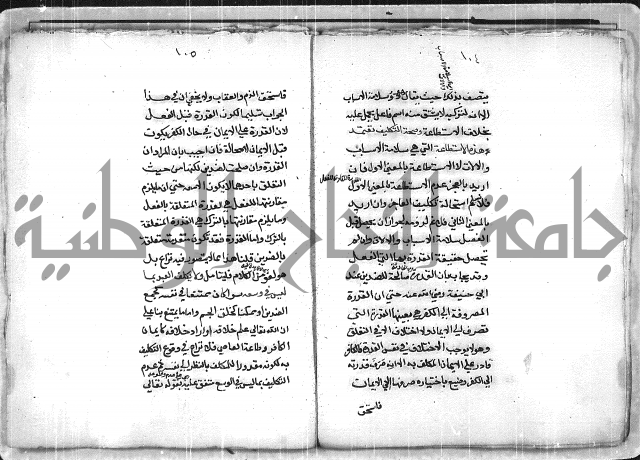 ١٠٤
يتصف بذلك حيث يقال ذو سلامة الاسباب
الا انه لتركبه لا يشتق منه اسم فاعل يحمل عليه
بخلاف الاستطاعة وصحة التكليف تعتمد
هذه الاستطاعة التي هي سلامة الاسباب
والالات لا الاستطاعة بالمعنى الاول فان
اريد بالعجز عدم الاستطاعة بالمعنى الاول
فلا نسلم استحالة تكليف العاجز وان اريد
بالمعنى الثاني فلا نسلم لزومه لجواز ان يحصل قبل
الفعل سلامة الاسباب والالات وان لم
يحصل حقيقة القدرة التي بها الفعل
وقد يجاب بان القدرة صالحة للضدين عند
ابي حنيفة رضي الله عنه حتى ان القدرة
المصروفة الى الكفر هي بعينها القدرة التي
تصرف الى الايمان ولا اختلاف الا في التعلق
وهو لا يوجب الاختلاف في نفس القدرة فالكافر
قادر على الايمان المكلف به الا انه صرف قدرته
الى الكفر وضيع باختياره صرفها الى الايمان
فاستحق
١٠٥
فاستحق الذم والعقاب ولا يخفى ان في هذا
الجواب تسليما لكون القدرة قبل الفعل
لان القدرة على الايمان في حال الكفر يكون
قبل الايمان لا محالة فان اجيب بان المراد ان
القدرة وان صلحت للضدين لكنها من حيث
التعلق باحدهما لا يكون الا معه حتى ان ما يلزم
مقارنتها للفعل هي القدرة المتعلقة بالفعل
وما يلزم مقارنتها بالترك هي القدرة المتعلقة
بالترك واما نفس القدرة فقد يكون متقدمة متعلقة
بالضدين قلنا هذا مما لا يتصور فيه نزاع بل
هو لغو من الكلام فليتامل ولا يكلف العبد بما
ليس في وسعه سواء كان ممتنعا في نفسه كجمع
الضدين او ممكنا كخلق الجسم واما ما يمتنع بناء على
ان الله تعالى علم خلافه او اراد خلافه كايمان
الكافر وطاعة العاصي فلا نزاع في وقوع التكليف
به لكونه مقدورا للمكلف بالنظر الى نفسه ثم عدم
التكليف بما ليس في الوسع متفق عليه بقوله تعالى
جامعة النجاح الوطنية